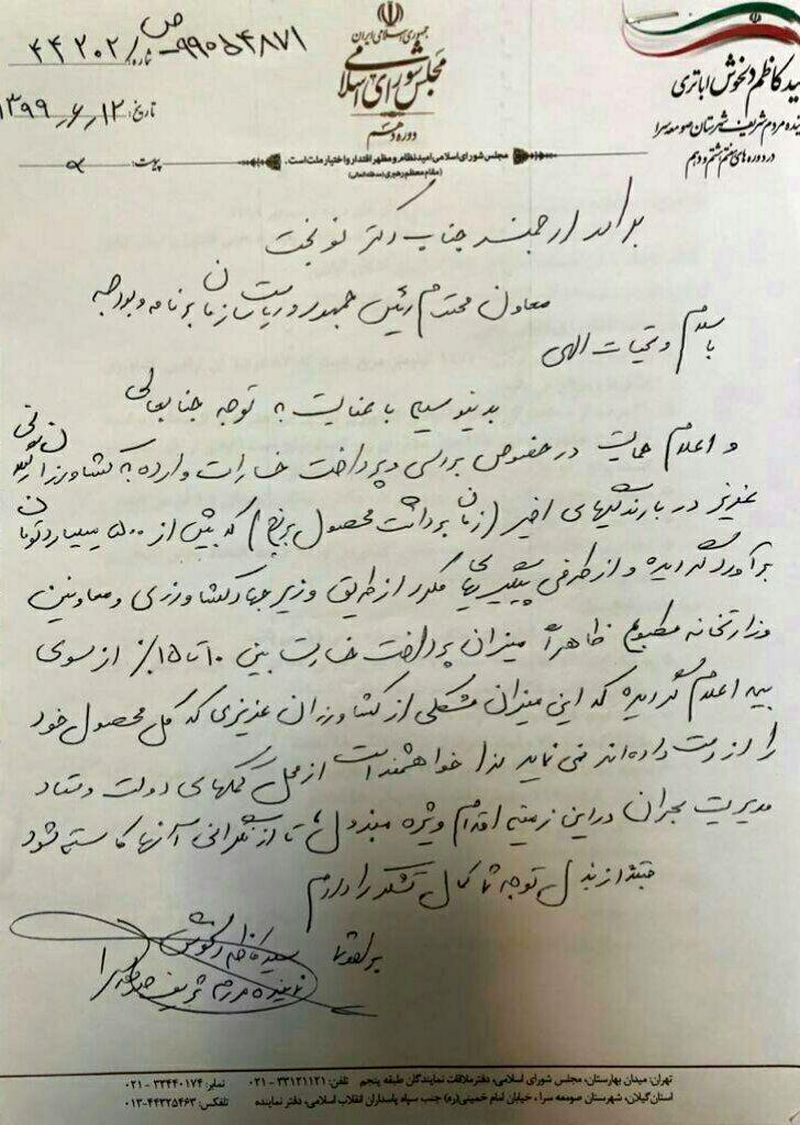 جمهوری اسلامی ایران
مجلس شورای اسلامی
دوره دهم
مجلس شورای اسلامی امید نظام و مظهر اقتدار و اختیار ملت است.
(مقام معظم رهبری (مدظله العالی))
ید کاظم دلخوش اباتری
ینده مردم شریف شهرستان صومعه سرا
در دوره های هفتم هشتم و دهم
شماره ۴۴۲۰۲/ ۹۹۰۵۴۸۷۱ ص
تاریخ: ۱۳۹۹،۶،۱۲
پیوست:
برادر ارجمند جناب دکتر نوبخت
معاون محترم رئیس جمهور و ریاست سازمان برنامه و بودجه
با سلام و تحیات الهی
بدینوسیله با عنایت به توجه جنابعالی
و اعلام حمایت در خصوص بررسی و پرداخت خسارات وارده به کشاورزان گیلانی
عزیز در بارندگیهای اخیر (زمان برداشت محصول برنج) که بیش از ۵۰۰ میلیارد تومان
برآورد گردیده و از طرفی پیگیریهای مکرر از طریق وزیر جهاد کشاورزی و معاونین
وزارتخانه مطبوع ظاهراً میزان پرداخت خسارت بین ۱۰ تا ۱۵٪ از سوی
بیمه اعلام گردیده که این میزان مشکلی از کشاورزان عزیزی که کل محصول خود
را از دست داده‌اند نمی نماید لذا خواهشمند است از محل کمکهای دولت و ستاد
مدیریت بحران در این زمینه اقدام ویژه مبذول تا از نگرانی آنها کاسته شود
از بذل توجه شما کمال تشکر را دارم
سید کاظم دلخوش
نماینده مردم شریف صومعه سرا
تهران: میدان بهارستان، مجلس شورای اسلامی، دفتر ملاقات نمایندگان طبقه پنجم تلفن: ۳۳۱۲۱۱۲۱ - ۰۲۱ نمابر: ۳۳۴۴۰۱۷۴ - ۰۲۱
استان گیلان، شهرستان صومعه سرا ، خیابان امام خمینی(ره) جنب سپاه پاسداران انقلاب اسلامی، دفتر نماینده تلفکس: ۴۴۳۲۵۴۶۳-۰۱۳